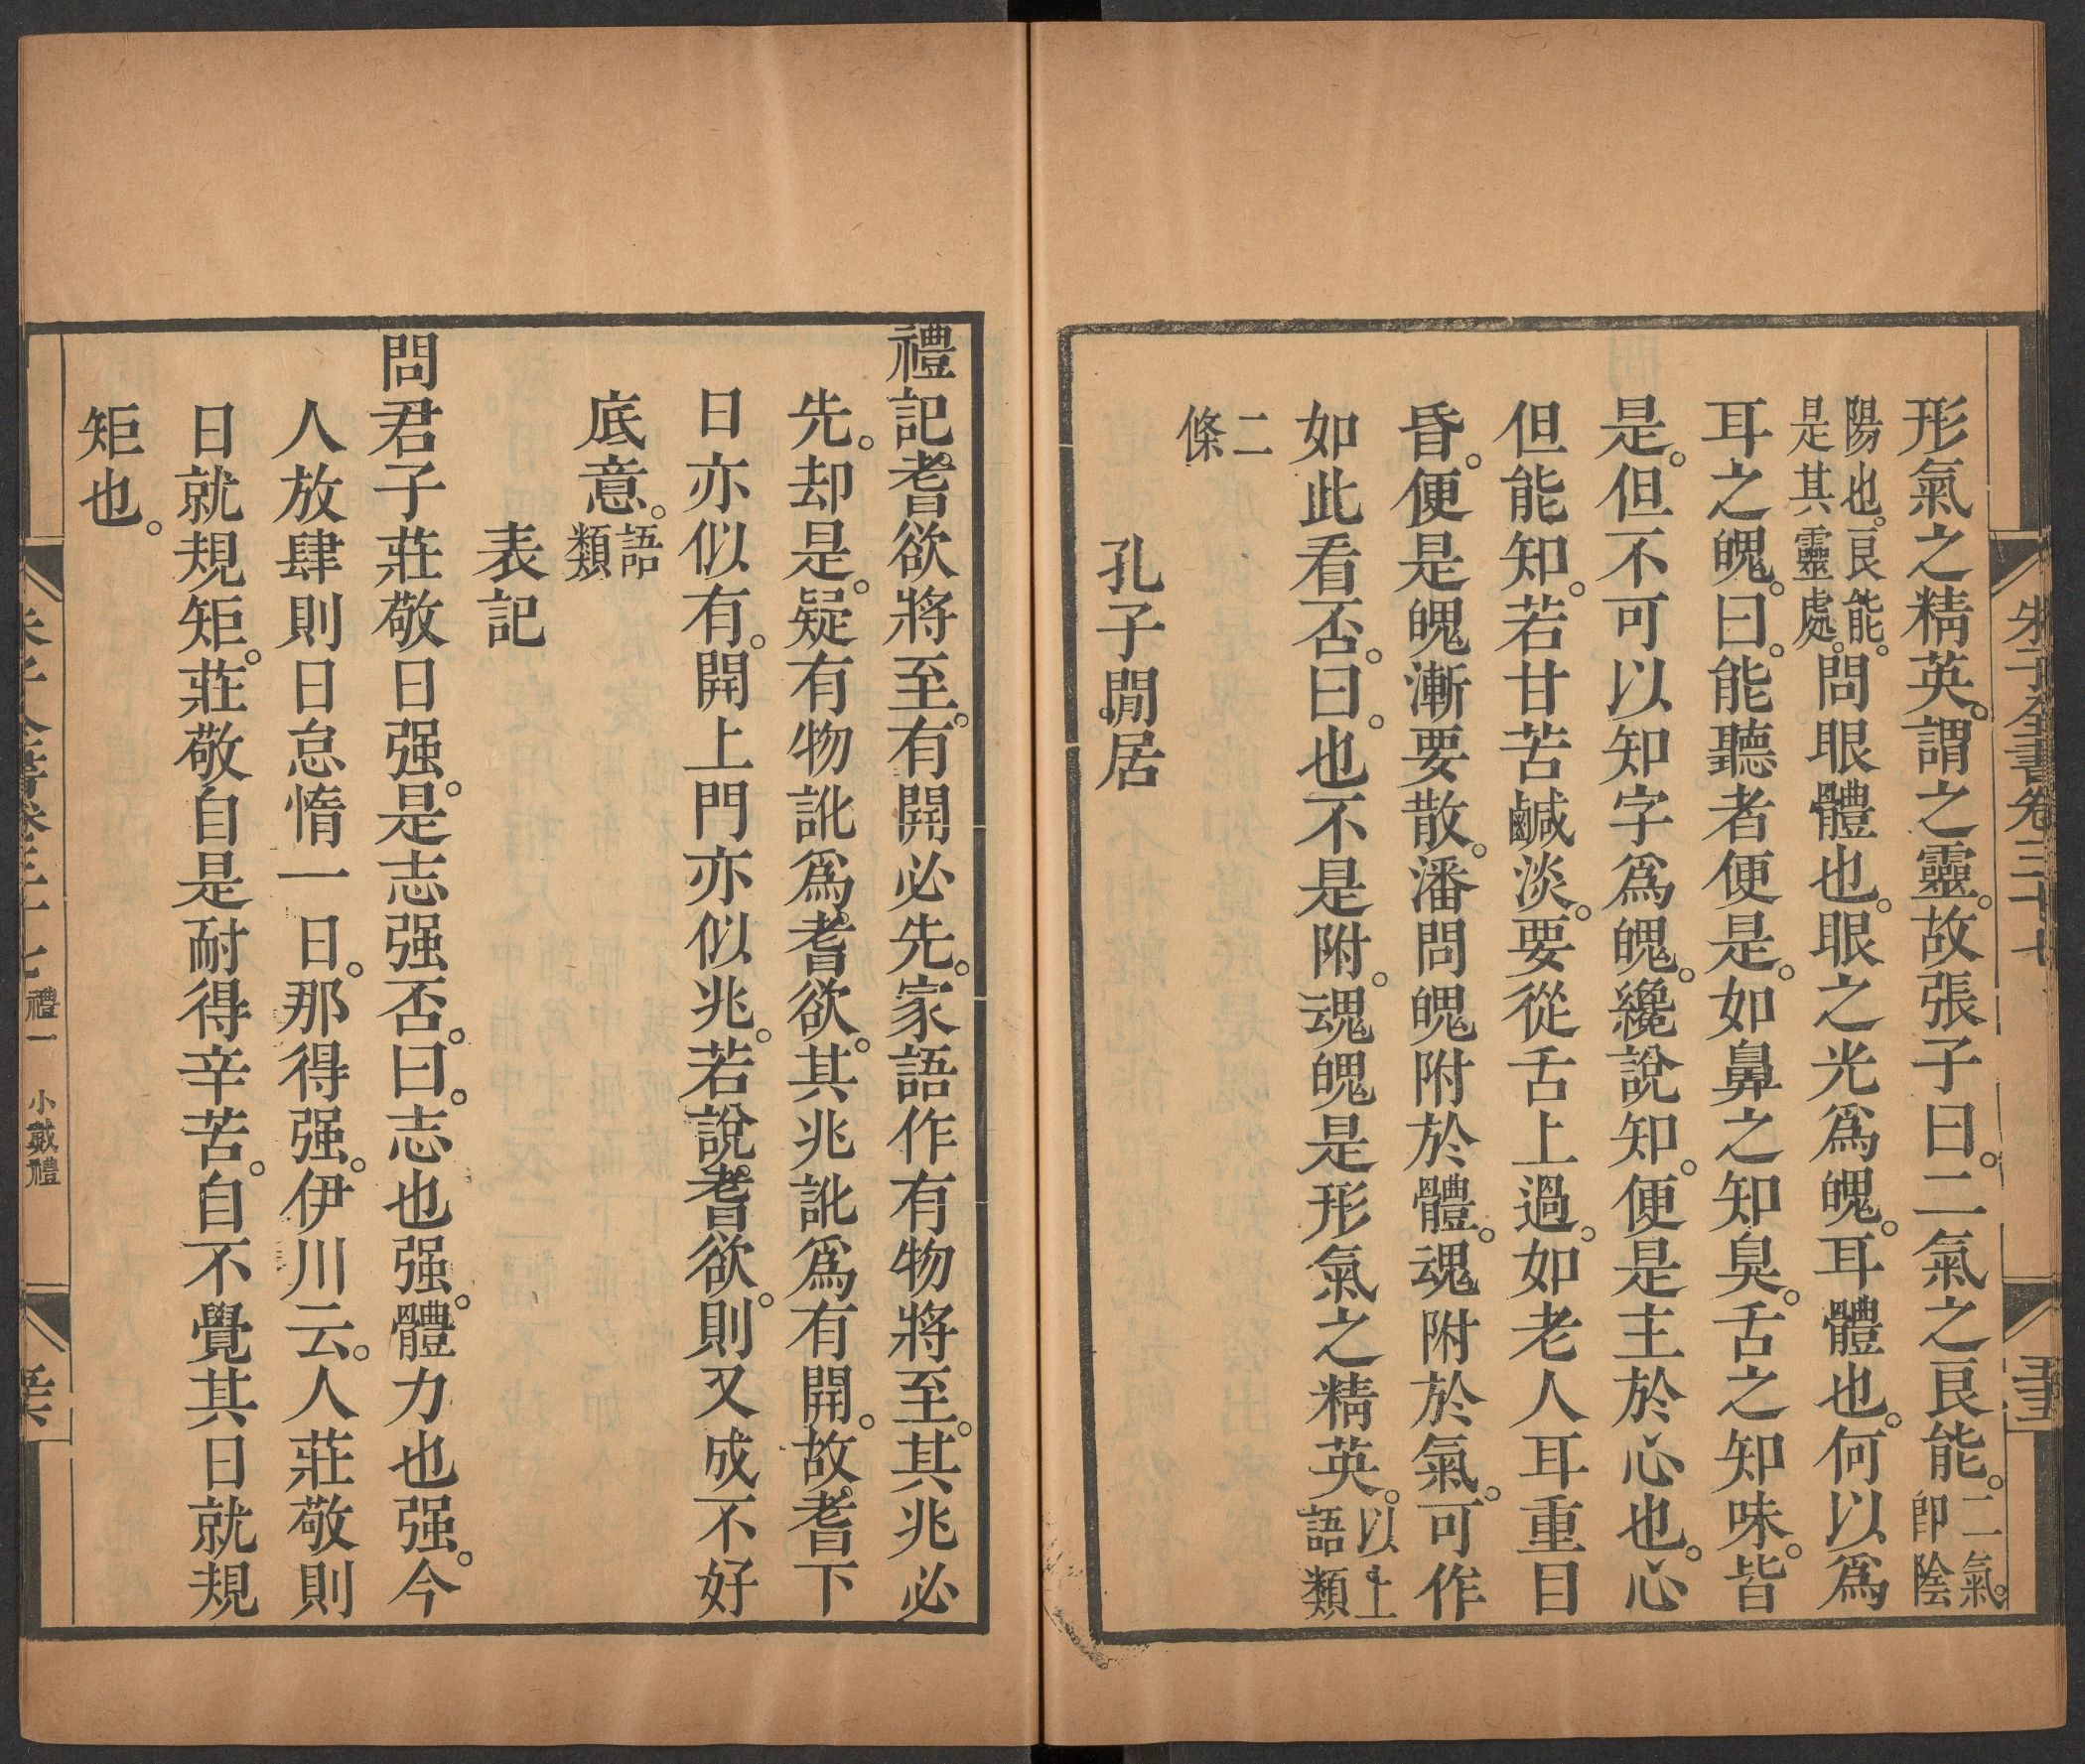 朱子全書卷三十七
形氣之精英。謂之靈。故張子曰。二氣之良能。二氣。卽陰
陽也。良能。是其靈處。問眼體也。眼之光爲魄。耳體也。何以爲
耳之魄。曰。能聽者便是。如鼻之知臭。舌之知味。皆
是。但不可以知字爲魄。纔說知。便是主於心也。心
但能知。若甘苦鹹淡。要從舌上過。如老人耳重目
昏。便是魄漸要散。潘問魄附於體。魂附於氣。可作
如此看否。曰。也不是附。魂魄是形氣之精英。以上語類
二條
孔子閒居
禮記。耆欲將至。有開必先。家語作有物將至。其兆必
先。却是。疑有物訛爲耆欲。其兆訛爲有開。故耆下
日亦似有。開上門亦似兆。若說耆欲。則又成不好
底意。語類
表記
問君子莊敬日强。是志强否。曰。志也强。體力也强。今
人放肆則日怠惰一日。那得强。伊川云。人莊敬則
日就規矩。莊敬自是耐得辛苦。自不覺其日就規
矩也。
朱子全書卷三十七 禮一 小戴禮